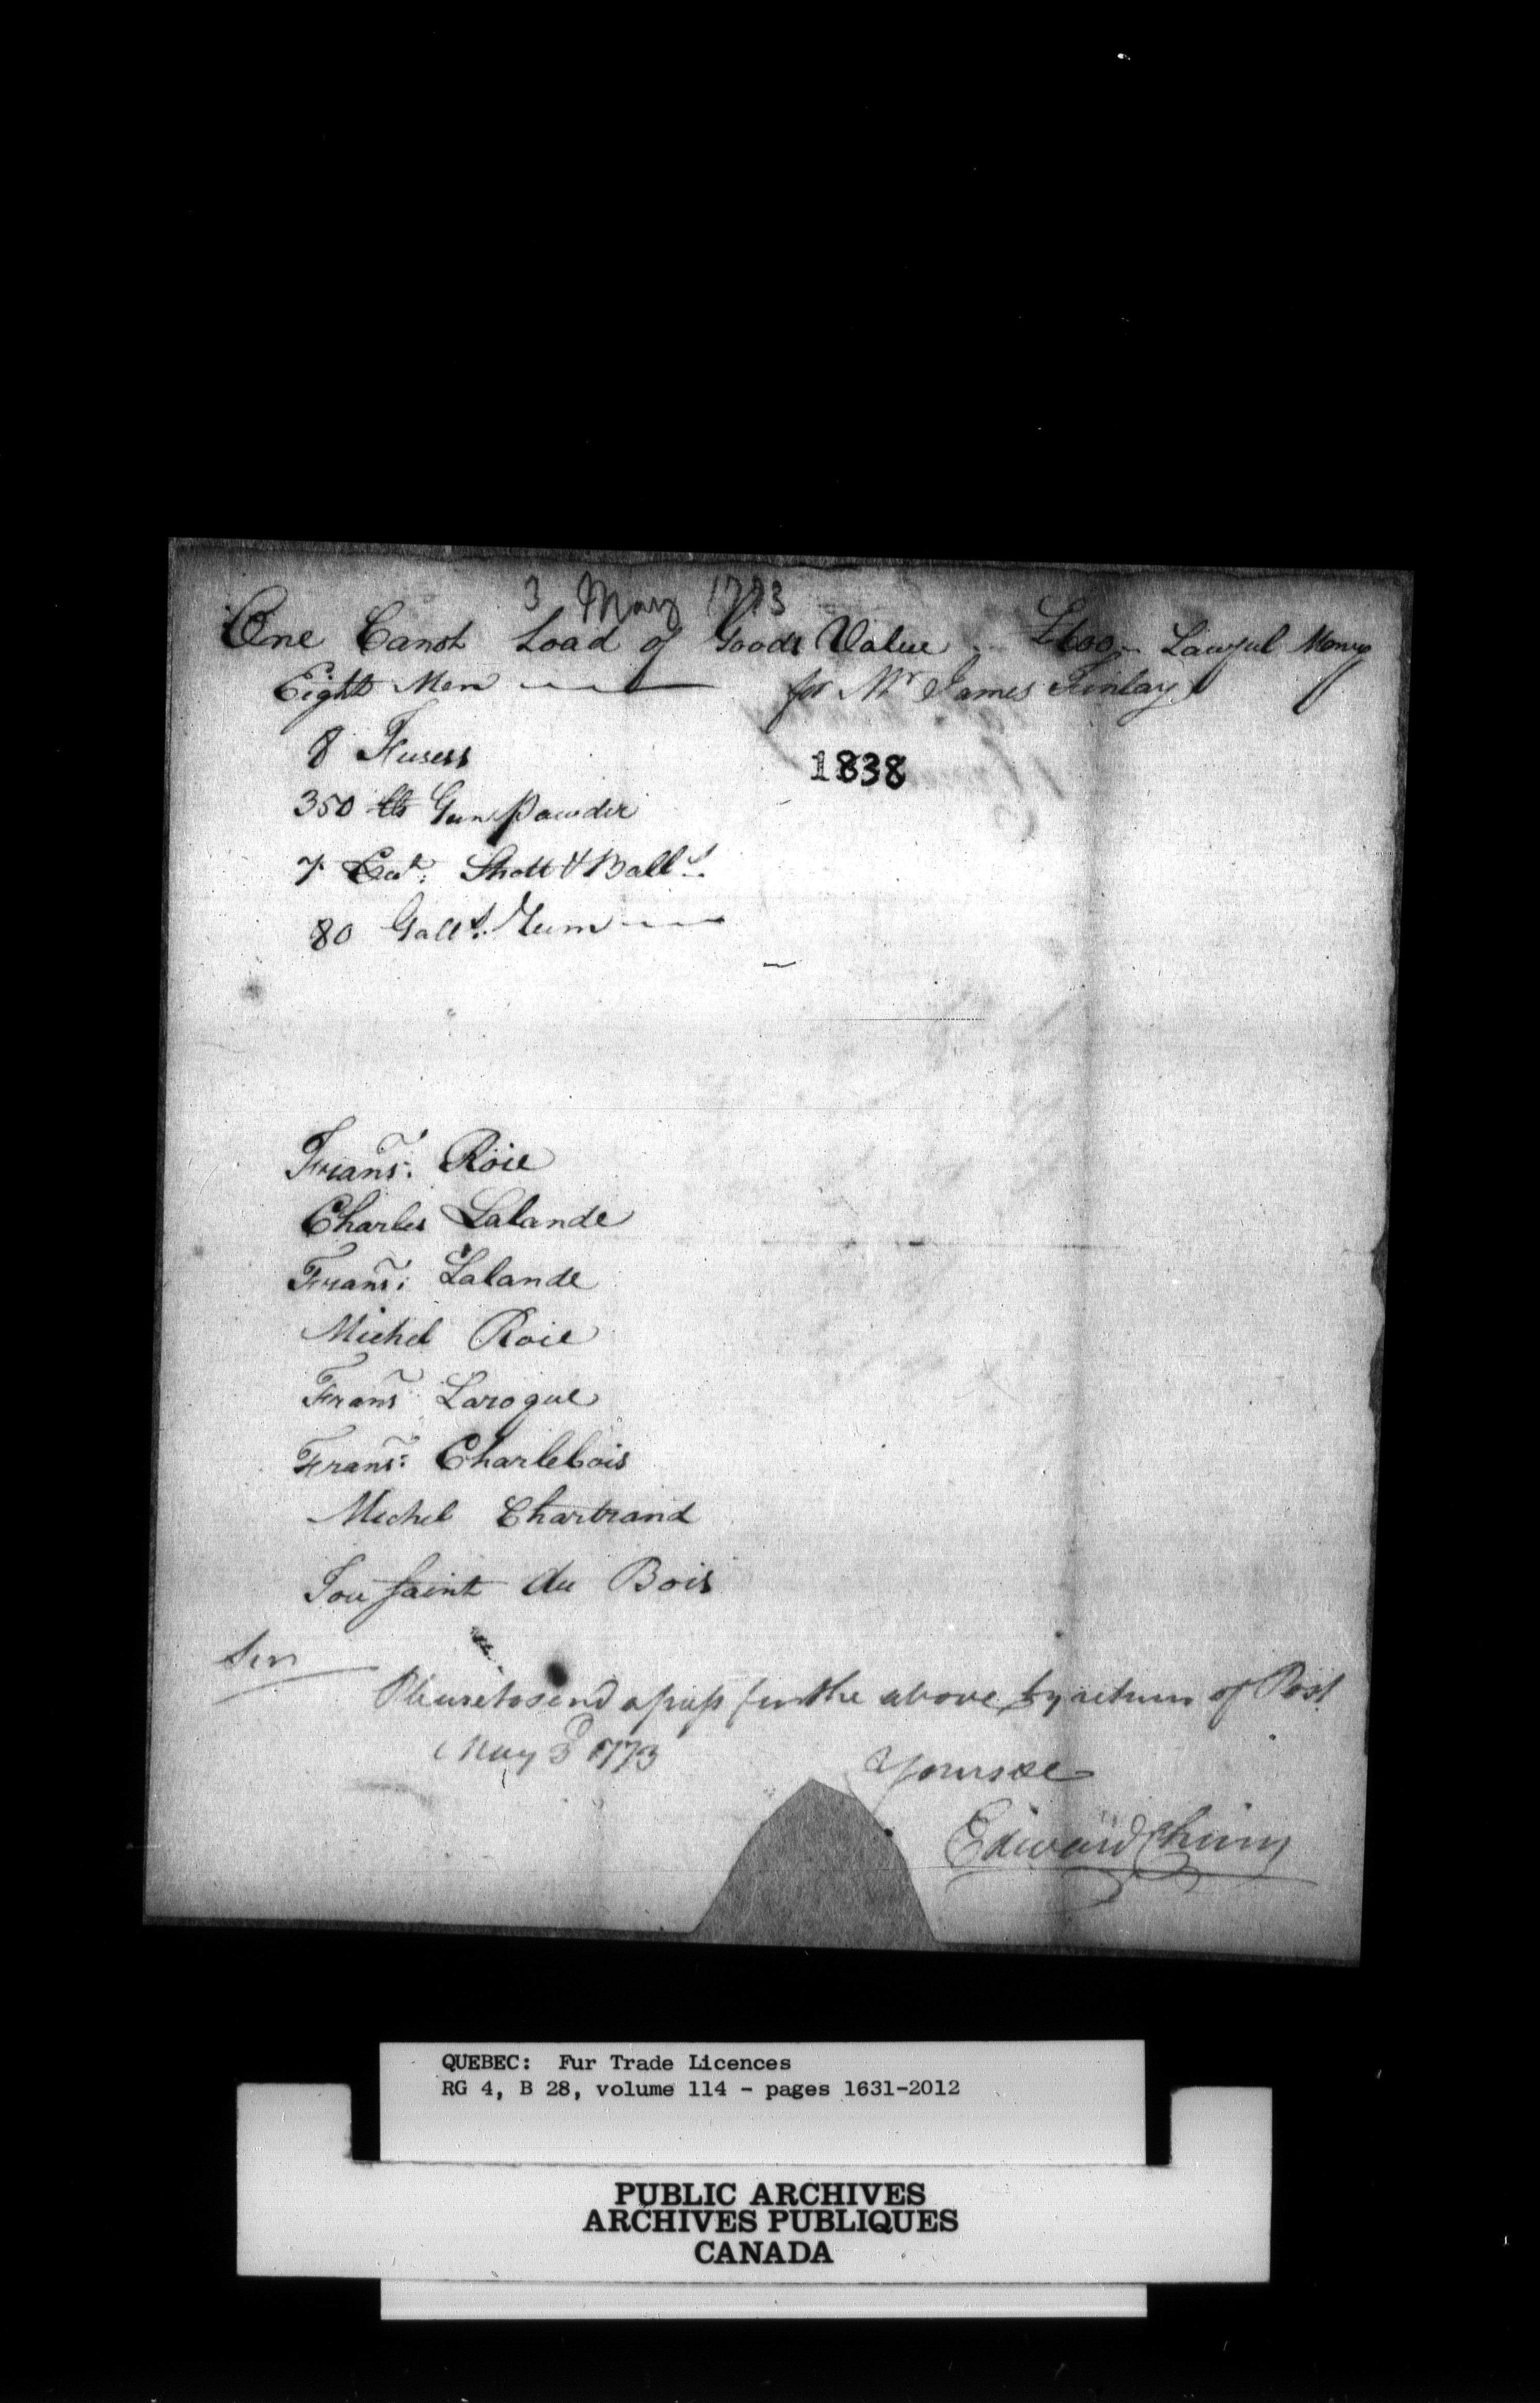 3 May 1773
One Canoh Load of Goods Value £600 - Lawful Money
Eight Men for Mr James Finlay
8 Fuses
1838
350 lb GunPowder
7 Cwt: Shott & Balls.
80 Galls. Rum
Frans: Roie
Charles Lalande
Frans: Lalande
Michel Roie
Frans Laroque
Frans: Charlebois
Michel Chartrand
Tousaint du Bois
Sir
Please to send a pass for the above by return of Post
May 3d 1773
Yours &c
Edward Chinn
QUEBEC: Fur Trade Licences
RG 4, B 28, volume 114 - pages 1631-2012
PUBLIC ARCHIVES
ARCHIVES PUBLIQUES
CANADA